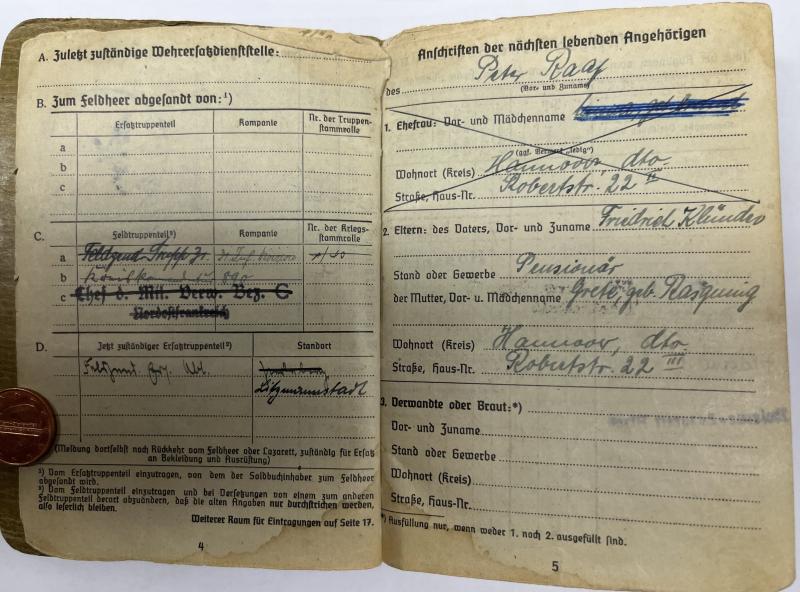 A. Zuletzt zuständige Wehrersatzdienststelle:
B. Zum Feldheer abgesandt von:¹)
Ersatztruppenteil Kompanie Nr. der Truppen-
stammrolle
a
b
c
C. Feldtruppenteil²) Kompanie Nr. der Kriegs-
stammrolle
a
b
c Chef d. Mil. Verw. Bez. C
Nordostfrankreich
D. Jetzt zuständiger Ersatztruppenteil²) Standort
Litzmannstadt
(Meldung dortselbst nach Rückkehr vom Feldheer oder Lazarett, zuständig für Ersatz
an Bekleidung und Ausrüstung)
¹) Vom Ersatztruppenteil einzutragen, von dem der Soldbuchinhaber zum Feldheer
abgesandt wird.
²) Vom Feldtruppenteil einzutragen und bei Versetzungen von einem zum anderen
Feldtruppenteil derart abzuändern, daß die alten Angaben nur durchstrichen werden,
also leserlich bleiben.
Weiterer Raum für Eintragungen auf Seite 17.
4
Anschriften der nächsten lebenden Angehörigen
des Peter Raaf
(Vor- und Zuname)
1. Ehefrau: Vor- und Mädchenname
(ggf. Vermerk „ledig")
Wohnort (Kreis) Hannover dto
Straße, Haus-Nr. Robertstr. 22 II
2. Eltern: des Vaters, Vor- und Zuname Friedrich Klünder
Stand oder Gewerbe Pensionär
der Mutter, Vor- u. Mädchenname Grete, geb.
Wohnort (Kreis) Hannover, dto
Straße, Haus-Nr. Robertstr. 22 III
3. Verwandte oder Braut:*)
Vor- und Zuname
Stand oder Gewerbe
Wohnort (Kreis)
Straße, Haus-Nr.
*) Ausfüllung nur, wenn weder 1. noch 2. ausgefüllt sind.
5